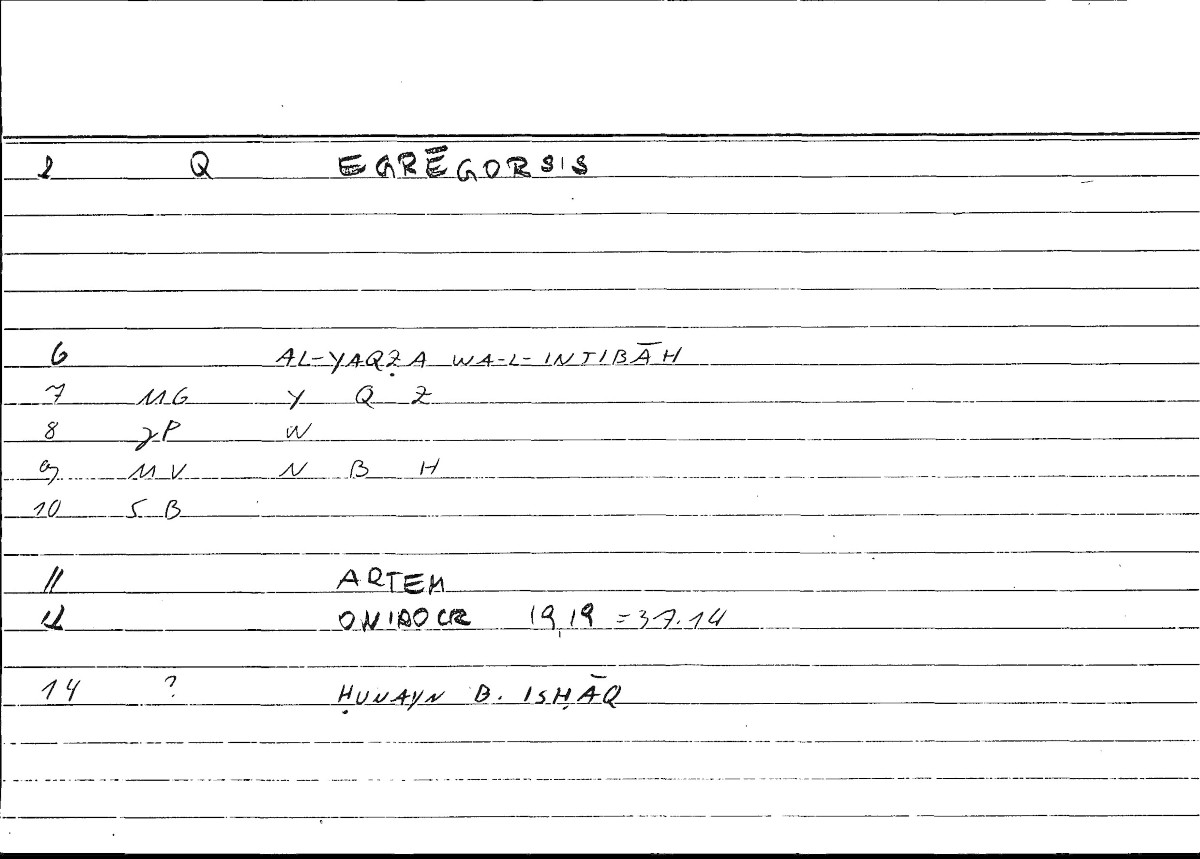 1 Q EGRĒGORSIS
6 AL-YAQẒA WA-L-INTIBĀH
7 MG Y Q Z
8 P W
9 MV N B H
10 SB
11 ARTEM
12 ONIROCR 19,19 = 37.14
14 ? ḤUNAYN B. ISḤĀQ